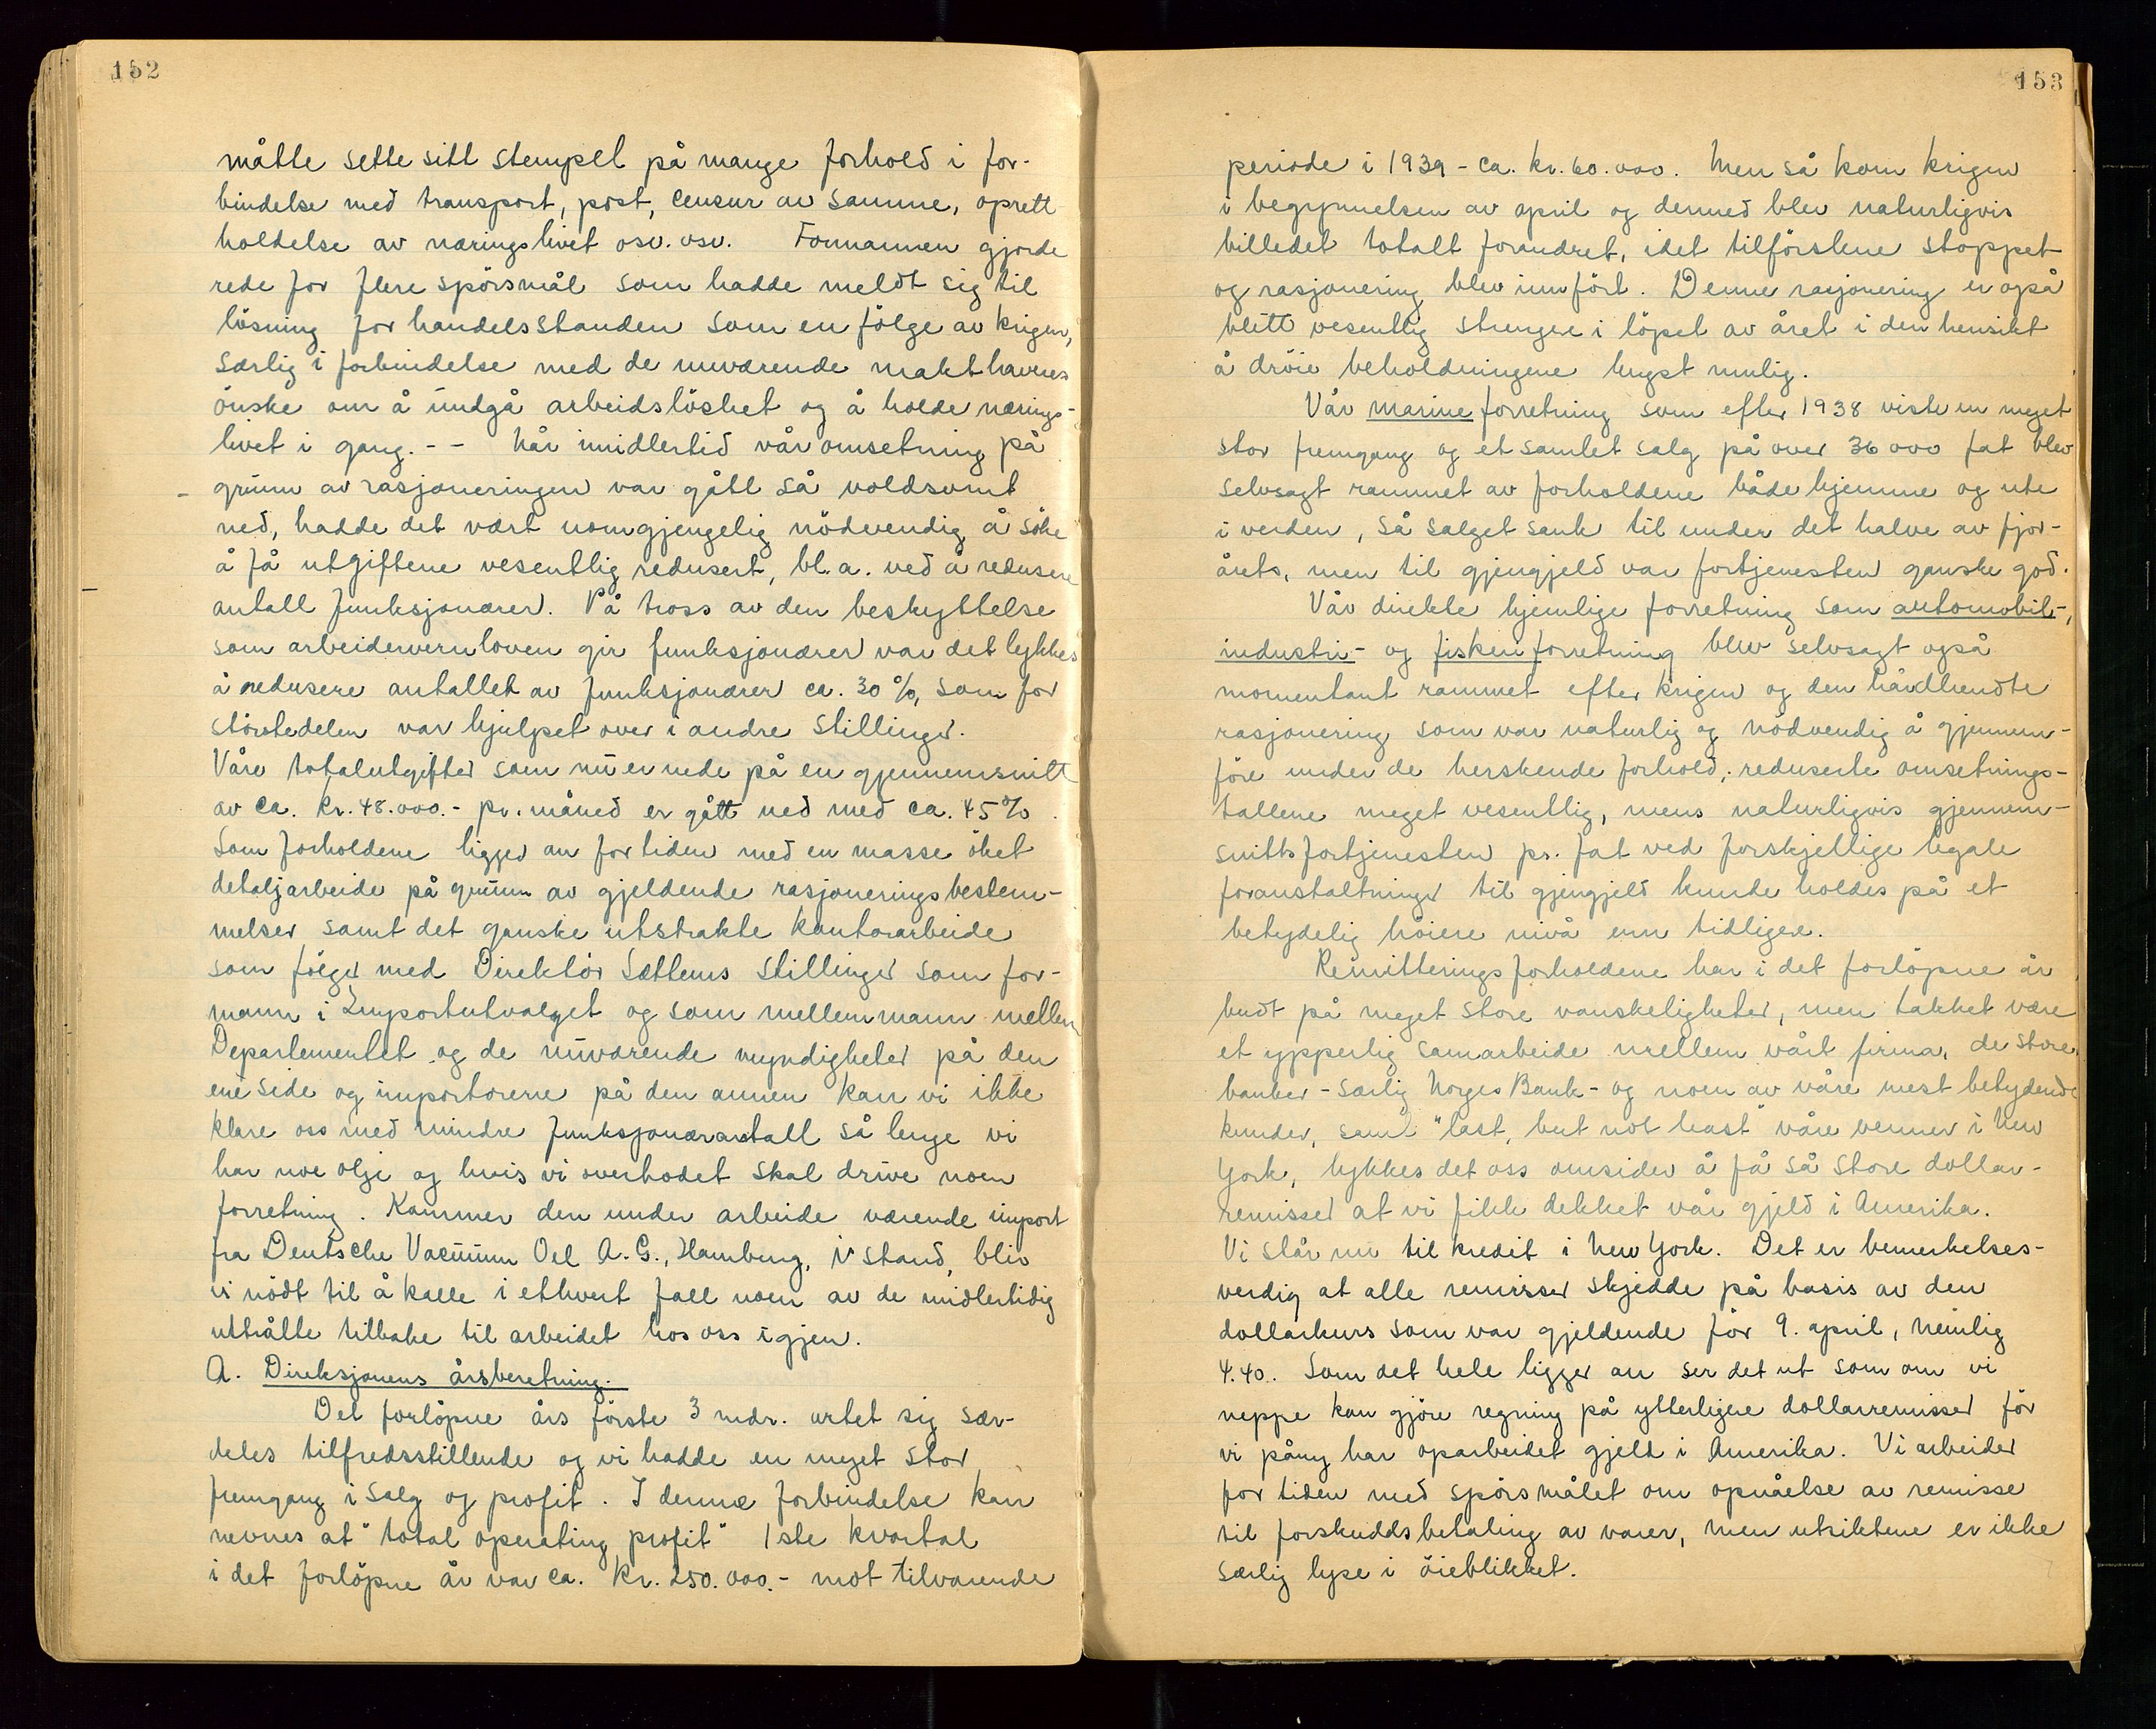 152
måtte sette sitt stempel på mange forhold i for-
bindelse med transport, post, censur av samme, oprett
holdelse av næringslivet osv. osv. Formannen gjorde
rede for flere spörsmål som hadde meldt sig til
lösning for handelsstanden som en fölge av krigen,
særlig i forbindelse med de nuværende makthavernes
önske om å undgå arbeidslöshet og å holde nærings-
livet i gang. - - Når imidlertid vår omsetning på
grunn av rasjoneringen var gått så voldsomt
ned, hadde det vært uomgjengelig nödvendig å söke
å få utgiftene vesentlig redusert, bl. a. ved å redusere
antall funksjonærer. På tross av den beskyttelse
som arbeidervernloven gir funksjonærer var det lykkes
å redusere antallet av funksjonærer ca. 30 %, som for
störstedelen var hjulpet over i andre stillinger.
Våre totalutgifter som nu er nede på en gjennemsnitt
av ca. kr. 48.000.- pr. måned er gått ned med ca. 45%.
Som forholdene ligger an for tiden med en masse öket
detaljarbeide på grunn av gjeldende rasjoneringsbestem-
melser samt det ganske utstrakte kontorarbeide
som fölger med Direktör Sættems stillinger som for-
mann i Importutvalget og som mellemmann mellem
Departementet og de nuværende myndigheter på den
ene side og importörerne på den annen kan vi ikke
klare oss med mindre funksjonærantall så lenge vi
har noe olje og hvis vi overhodet skal drive noen
forretning. Kommer den under arbeide værende import
fra Deutsche Vacuum Oel A. G., Hamburg, i stand, bliv
vi nödt til å kalle i ethvert fall noen av de midlertidig
uttrådte tilbake til arbeidet hos oss igjen.
A. Direksjonens årsberetning.
Det forlöpne års förste 3 mdr. artet sig sær-
deles tilfredsstillende og vi hadde en meget stor
fremgang i salg og profit. I denne forbindelse kan
nevnes at "total operating profit" 1ste kvartal
i det forlöpne år var ca. kr. 250.000.- mot tilsvarende
153
periode i 1939 - ca. kr. 60.000. Men så kom krigen
i begynnelsen av april og dermed blev naturligvis
billedet totalt forandret, idet tilförslene stoppet
og rasjonering blev innfört. Denne rasjonering er også
blitt vesentlig strengere i löpet av året i den hensikt
å dröie beholdningene lengst mulig.
Vår marineforretning som efter 1938 viste en meget
stor fremgang og et samlet salg på over 36 000 fat blev
selvsagt rammet av forholdene både hjemme og ute
i verden, så salget sank til under det halve av fjor-
årets, men til gjengjeld var fortjenesten ganske god.
Vår direkte hjemlige forretning som automobil-,
industri- og fiskeriforretning blev selvsagt også
momentant rammet efter krigen og den hårdhendte
rasjonering som var naturlig og nödvendig å gjennem-
före under de herskende forhold, reduserte omsetnings-
tallene meget vesentlig, mens naturligvis gjennem-
snittsfortjenesten pr. fat ved forskjellige legale
foranstaltninger til gjengjeld kunde holdes på et
betydelig höiere nivå enn tidligere.
Remitteringsforholdene har i det forlöpne år
budt på meget store vanskeligheter, men takket være
et ypperlig samarbeide mellem vårt firma, de store
banker - særlig Norges Bank - og noen av våre mest betydende
kunder, samt "last, but not least" våre venner i New
York, lykkes det oss omsider å få så store dollar-
remisser at vi fikk dekket vår gjeld i Amerika.
Vi står nu til kredit i New York. Det er bemerkelses-
verdig at alle remisser skjedde på basis av den
dollarkurs som var gjeldende för 9. april, nemlig
4.40. Som det hele ligger an ser det ut som om vi
neppe kan gjöre regning på ytterligere dollarremisser för
vi påny har oparbeidet gjeld i Amerika. Vi arbeider
for tiden med spörsmålet om opnåelse av remisse
til forskuddsbetaling av varer, men utsiktene er ikke
særlig lyse i öieblikket.